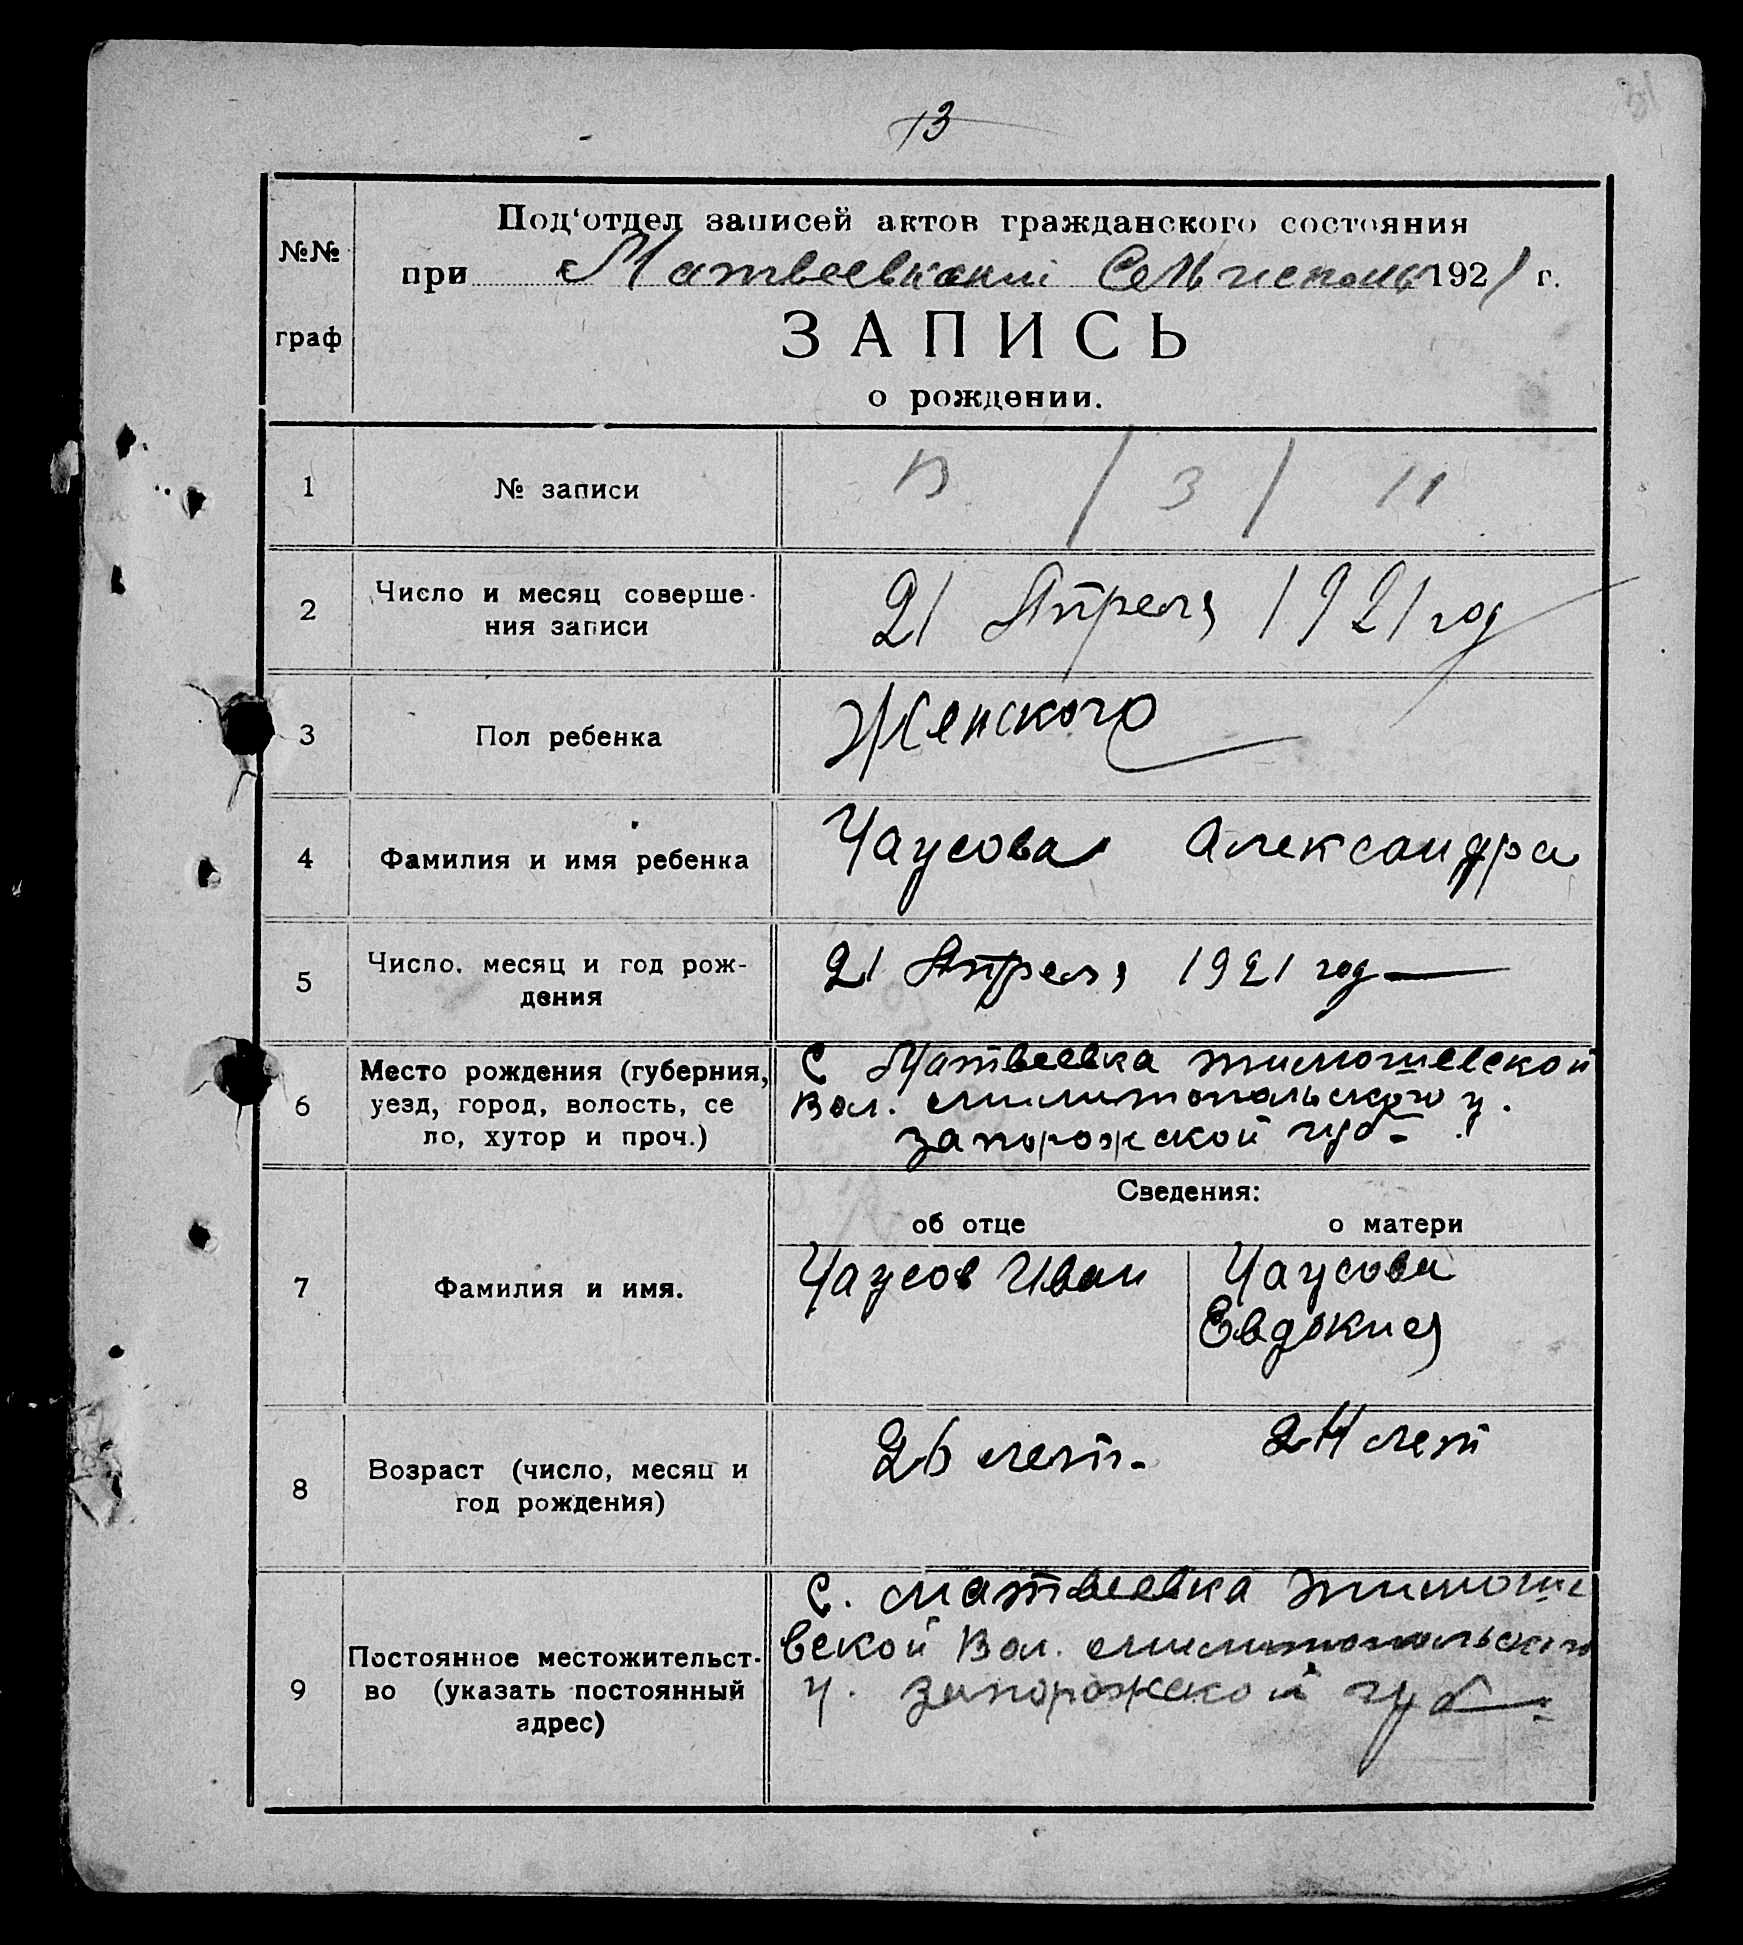 13
Под‘отдел записей актов гражданского состояния
№№ граф
при Матвеевский 1921 г.
ЗАПИСЬ
о рождении.
1 № записи 13 / 3 / 11
2 Число и месяц соверше-
ния записи
21 Апреля 1921 год
3 Пол ребенка Женского
4 Фамилия и имя ребенка Чаусова Александра
5 Число, месяц и год рож-
дения
21 Апреля 1921 год
6 Место рождения (губерния,
уезд, город, волость, се
ло, хутор и проч.)
С Матвеевка тимошевской
Вол. милитопольского у.
запорожской губ.
Сведения:
об отце о матери
7 Фамилия и имя.
Чаусов Иван
Чаусова
Евдокия
8 Возраст (число, месяц и
год рождения)
26 лет.
24 лет
9 Постоянное местожительст-
во (указать постоянный
адрес)
С. матвеевка тимоше
вской Вол. милитопольского
у. запорожской губ.